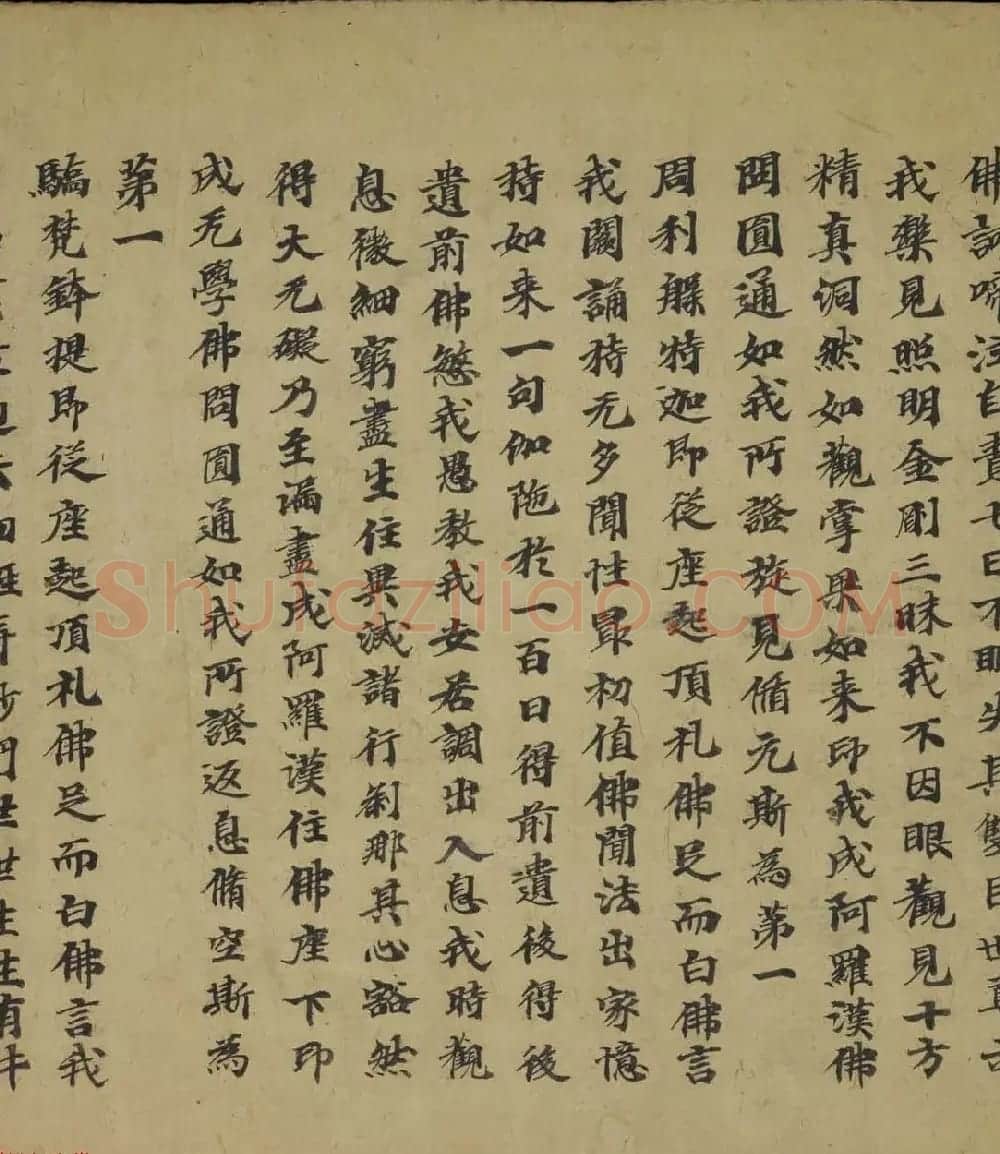 佛訶啼泣自責七日不眠失其雙目世尊示
我樂見照明金剛三昧我不因眼觀見十方
精真洞然如觀掌果如来印我成阿羅漢佛
問圓通如我所證旋見循元斯為第一
周利槃特迦即從座起頂礼佛足而白佛言
我闕誦持无多聞性最初值佛聞法出家憶
持如来一句伽陁於一百日得前遺後得後
遺前佛愍我愚教我安居調出入息我時觀
息微細窮盡生住異滅諸行剎那其心豁然
得大无礙乃至漏盡成阿羅漢住佛座下印
成无學佛問圓通如我所證返息循空斯為
第一
驕梵鉢提即從座起頂礼佛足而白佛言我
過去劫輕弄沙門世世生生有牛
Shufaziliao.COM